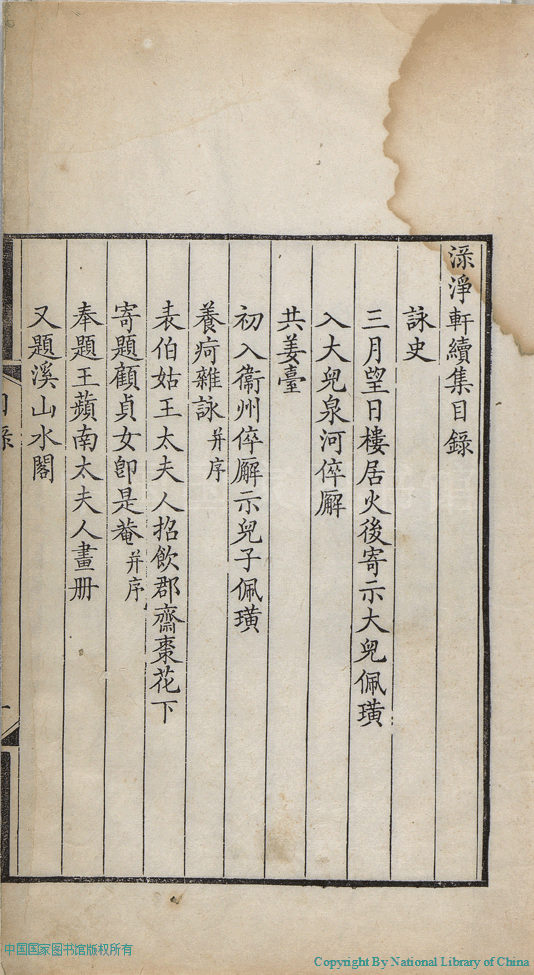 澯淨軒續集目錄
詠史
三月望日樓居火後寄示大兒佩璜
入大兒泉河倅廨
共姜臺
初入衞州倅廨示兒子佩璜
養疴雜詠并序
表伯姑王太夫人招飲郡齋棗花下
寄題顧貞女卽是菴并序
奉題王蘋南太夫人畫册
又題溪山水閣
中国国家图书馆版权所有
Copyright By National Library of China